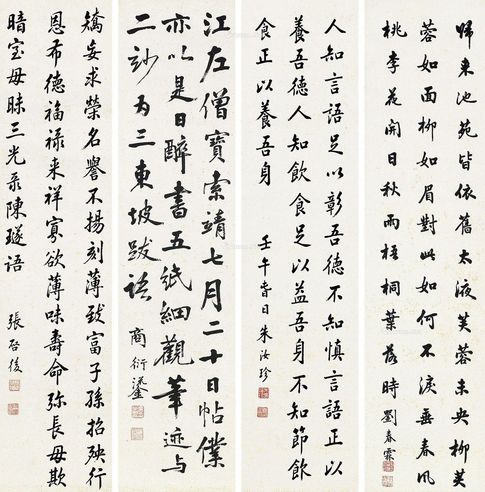 歸来池苑皆依舊太液芙蓉未央柳芙
蓉如面柳如眉對此如何不淚垂春風
桃李花開日秋雨梧桐葉落時 劉春霖
人知言語足以彰吾德不知慎言語正以
養吾德人知飲食足以益吾身不知節飲
食正以養吾身 壬午旾日朱汝珍
江左僧寶索靖七月二十日帖僕
亦以是日醉書五紙細觀筆迹与
二玅为三東坡跋語 商衍鎏
矯妄求榮名譽不揚刻薄致富子孫招殃行
恩布德福禄来祥寡欲薄味壽命弥長毋欺
暗室毋昧三光录陳璲語 張啓後